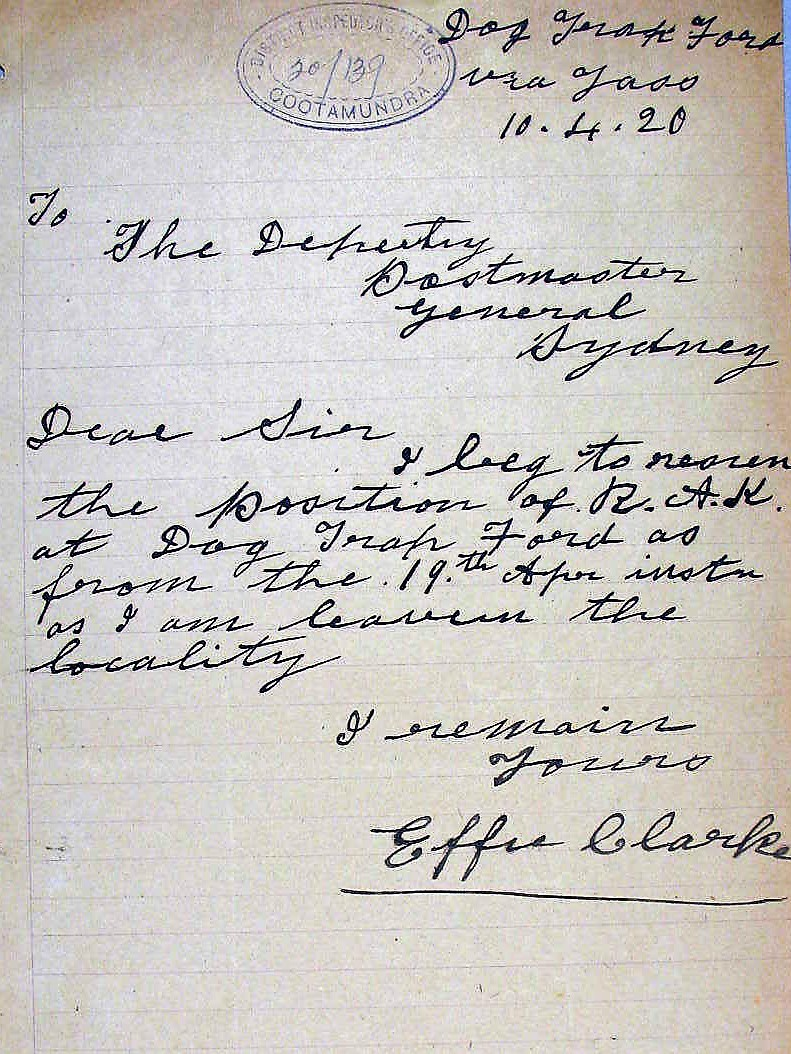 DISTRICT INSPECTOR'S OFFICE
20/139
COOTAMUNDRA
Dog Trap Ford
via Yass
10.4.20
To
The Deputy
Postmaster
General
Sydney
Dear Sir
I beg to
the position of R.A.K.
at Dog Trap Ford as
from the 19th Apr inst
as I am leavin the
locality
I remain
Yours
Effie Clarke